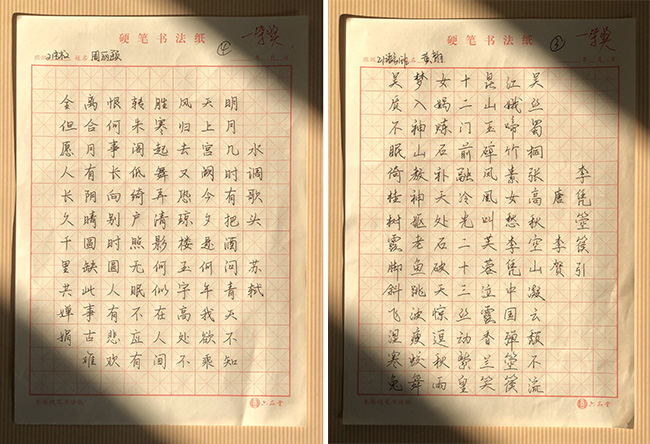 硬笔书法纸
一等奖
④
班级
姓名
水调歌头 苏轼
明月几时有把酒问青天不知
天上宫阙今夕是何年我欲乘
风归去又恐琼楼玉宇高处不
胜寒起舞弄清影何似在人间
转朱阁低绮户照无眠不应有
恨何事长向别时圆人有悲欢
离合月有阴晴圆缺此事古难
全但愿人长久千里共婵娟
六品堂
硬笔书法纸
一等奖
③
李凭箜篌引
唐 李贺
吴丝蜀桐张高秋空山凝云颓不流
江娥啼竹素女愁李凭中国弹箜篌
昆山玉碎凤凰叫芙蓉泣露香兰笑
十二门前融冷光二十三丝动紫皇
女娲炼石补天处石破天惊逗秋雨
梦入神山教神妪老鱼跳波瘦蛟舞
吴质不眠倚桂树露脚斜飞湿寒兔
六品堂